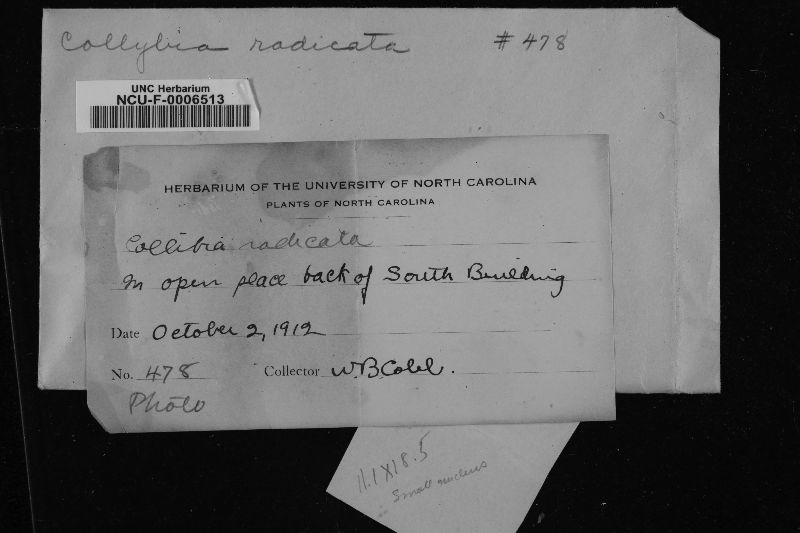 Collybia radicata # 478
UNC Herbarium
NCU-F-0006513
HERBARIUM OF THE UNIVERSITY OF NORTH CAROLINA
PLANTS OF NORTH CAROLINA
Collibia radicata
In open place back of South Building
Date October 2, 1912
No. 478 Collector W B Cobb.
Photo
11.1 X 18.5
Small nucleus